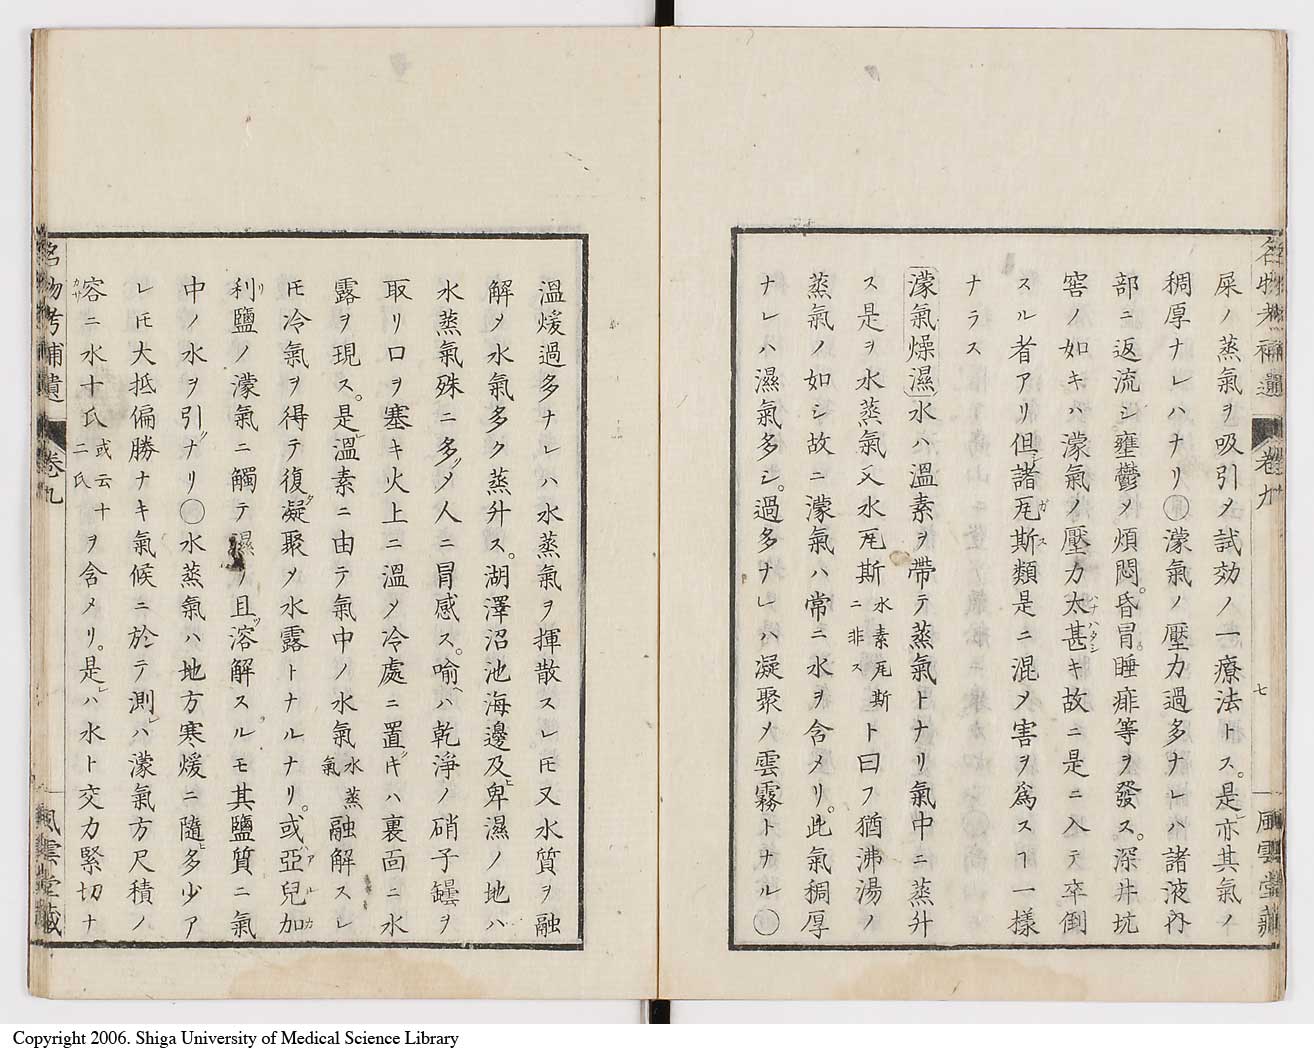 屎ノ蒸氣ヲ吸引乄試効ノ一療法トス。是亦其氣ノ
稠厚ナレハナリ 濛氣ノ壓力過多ナレハ諸液内
部ニ返流シ壅鬱乄煩悶。昏冒。睡痱等ヲ發ス。深井坑
窖ノ如キハ濛氣ノ壓力太甚キ故ニ是ニ入テ卒倒
ハナハタシ
スル者アリ但諸瓦斯類是ニ混乄害ヲ爲スヿ一樣
ガス
ナラス
濛氣燥濕 水ハ溫素ヲ帶テ蒸氣トナリ氣中ニ蒸升
ス是ヲ水蒸氣又水瓦斯水素瓦斯ニ非ストト曰フ猶沸湯ノ
蒸氣ノ如シ故ニ濛氣ハ常ニ水ヲ含メリ。此氣稠厚
ナレハ濕氣多シ。過多ナレハ凝聚乄雲霧トナル〇
名物考補遺 卷九 七 風雲堂藏
溫煖過多ナレハ水蒸氣ヲ揮散スレ𪜈又水質ヲ融
解乄水氣多ク蒸升ス。湖澤沼池海邊及ヒ卑濕ノ地ハ
水蒸氣殊ニ多ク乄人ニ冒感ス。喻ヘハ乾淨ノ硝子罎ヲ
取リ口ヲ塞キ火上ニ溫乄冷處ニ置ケハ裏面ニ水
露ヲ現ス。是レ溫素ニ由テ氣中ノ水氣水蒸氣融解スレ
𪜈冷氣ヲ得テ復タ凝聚乄水露トナルナリ。或ハ亞兒加
アルカ
利鹽ノ濛氣ニ觸テ濕ヒ且ツ溶解スルモ其鹽質ニ氣
リ
中ノ水ヲ引クナリ〇水蒸氣ハ地方寒煖ニ隨ヒ多少ア
レ𪜈大抵偏勝ナキ氣候ニ於テ測レハ濛氣方尺積ノ
容ニ水十氐或云十二氐ヲ含メリ。是レハ水ト交力緊切ナ
カサ
名物考補遺 卷九 風雲堂藏
Copyright 2006. Shiga University of Medical Science Library